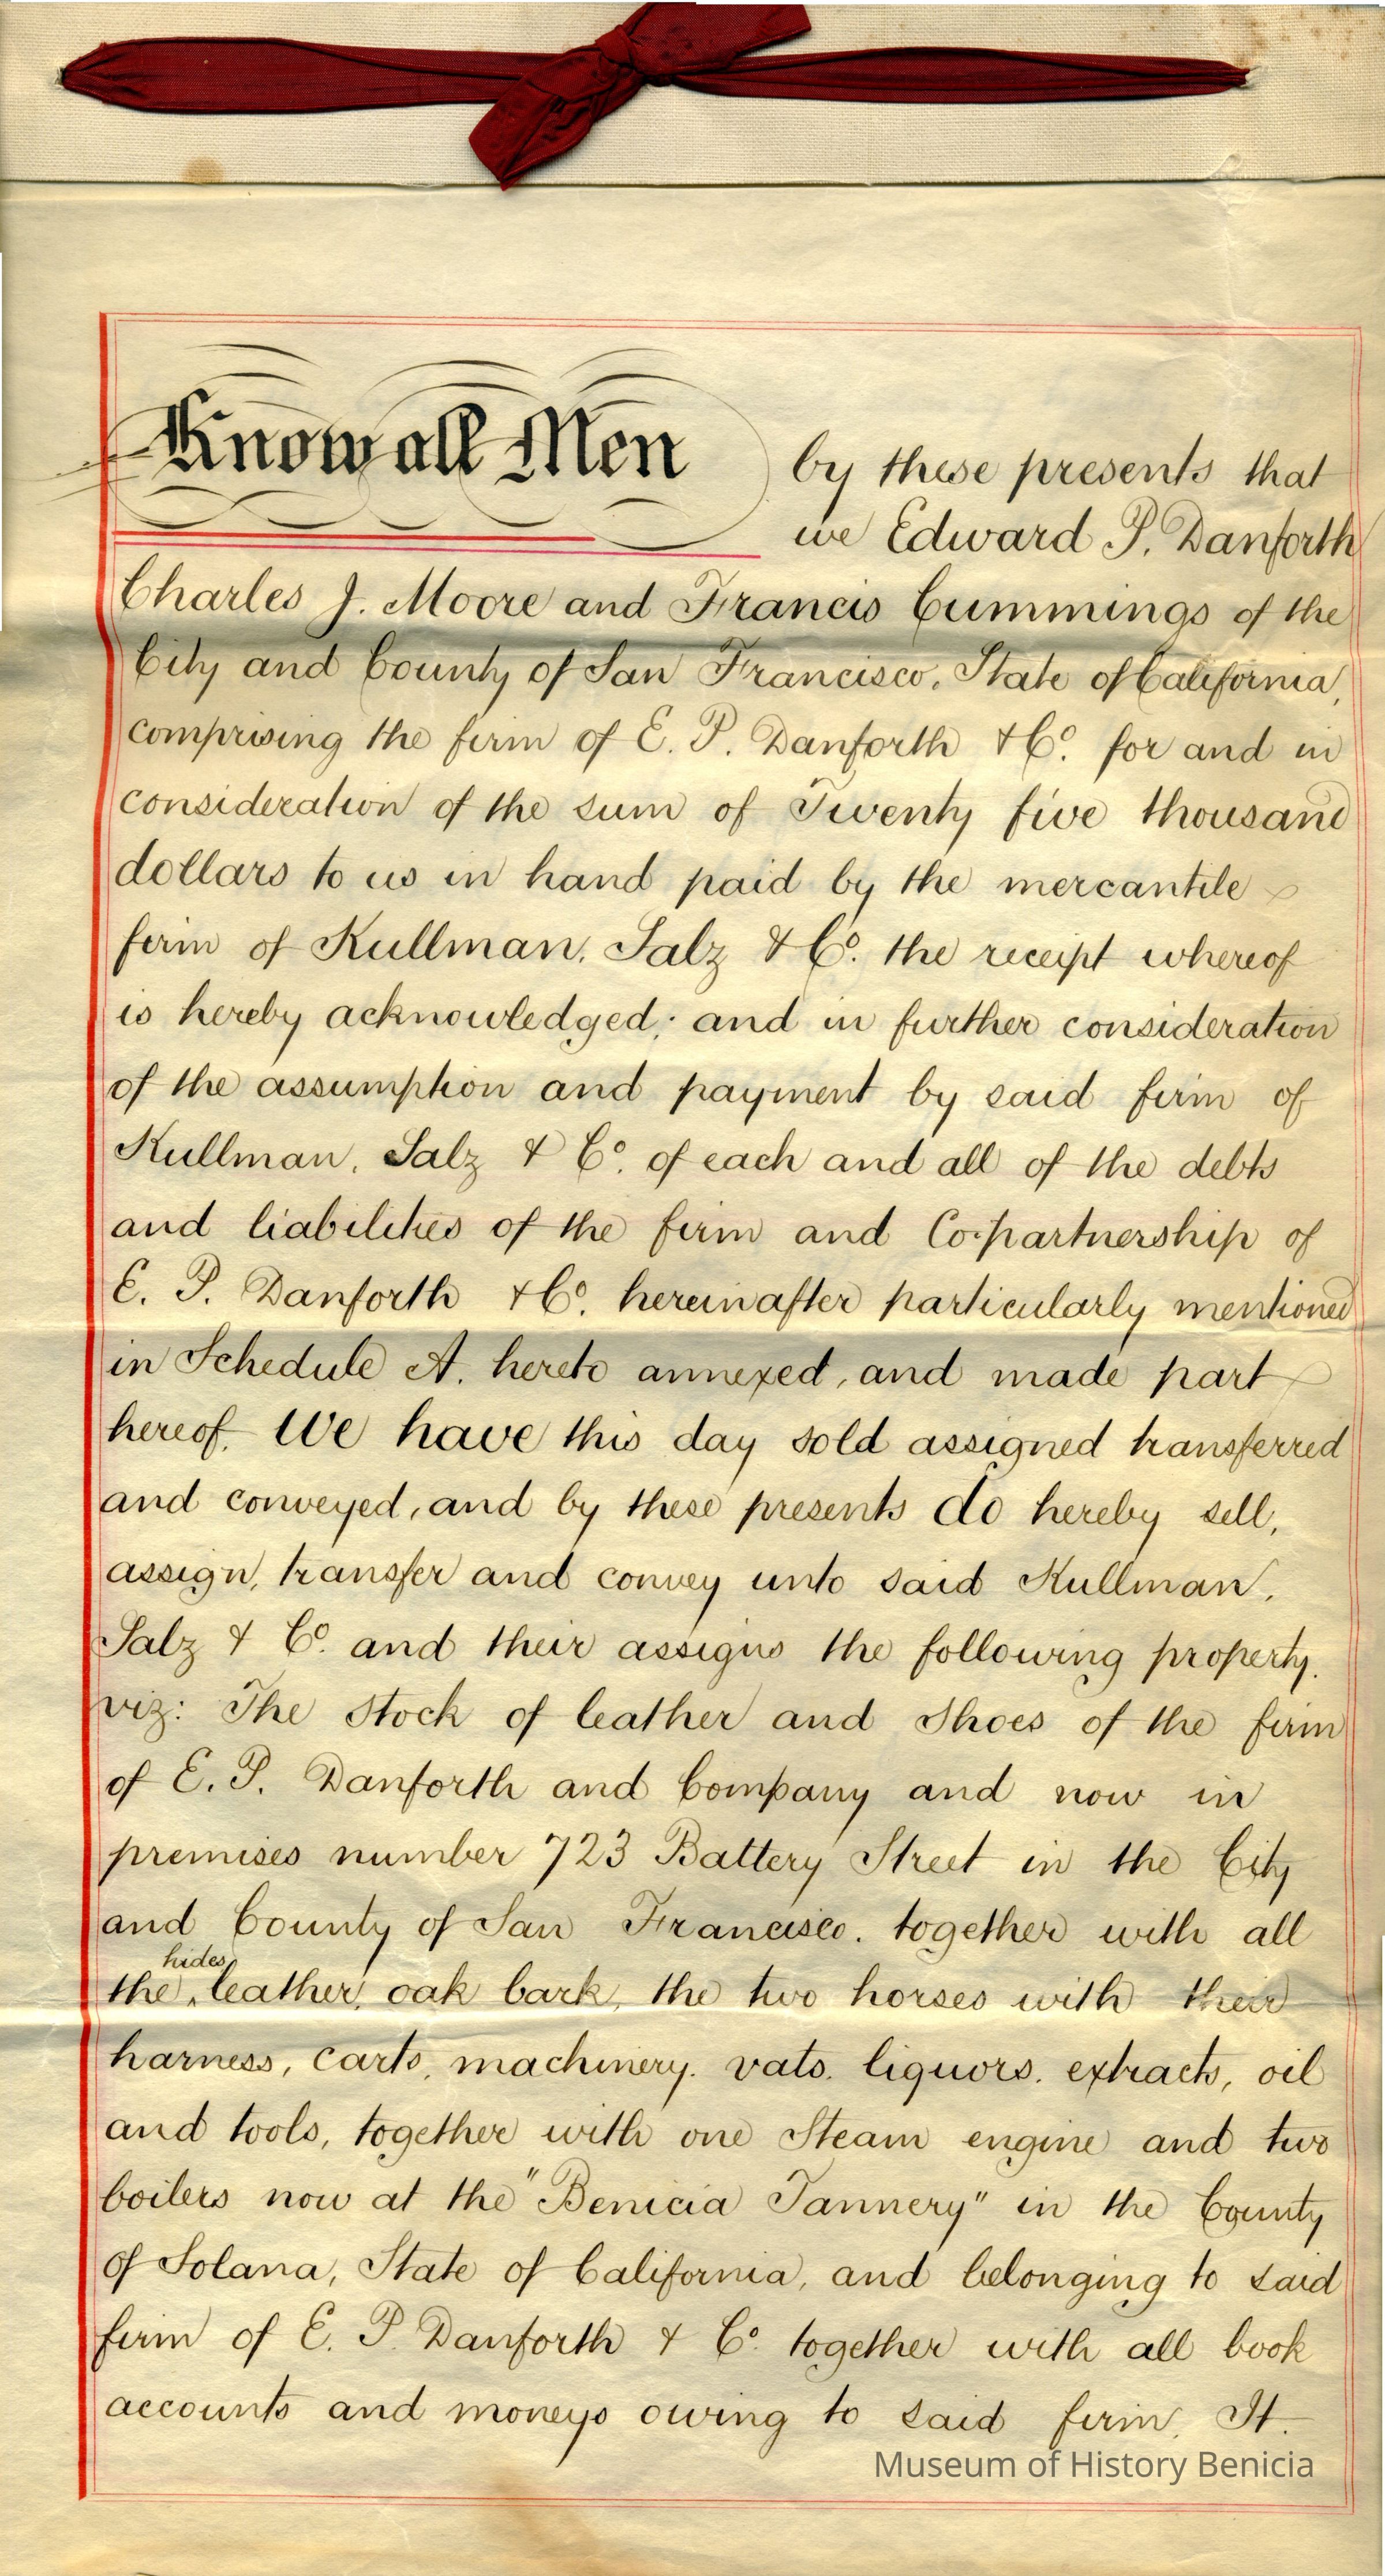 Know all Men by these presents that
we Edward P. Danforth
Charles J. Moore and Francis Cummings of the
City and County of San Francisco, State of California,
comprising the firm of E. P. Danforth & Co. for and in
consideration of the sum of Twenty five thousand
dollars to us in hand paid by the mercantile
firm of Kullman, Salz & Co. the receipt whereof
is hereby acknowledged; and in further consideration
of the assumption and payment by said firm of
Kullman, Salz & Co. of each and all of the debts
and liabilities of the firm and Co-partnership of
E. P. Danforth & Co. hereinafter particularly mentioned
in Schedule A. hereto annexed, and made part
hereof. We have this day sold assigned transferred
and conveyed, and by these presents do hereby sell,
assign, transfer and convey unto said Kullman,
Salz & Co. and their assigns the following property.
viz: The Stock of leather and Shoes of the firm
of E. P. Danforth and Company and now in
premises number 723 Battery Street in the City
and County of San Francisco. together with all
the hides, leather, oak bark, the two horses with their
harness, carts, machinery. vats. liquors. extracts, oil
and tools, together with one Steam engine and two
boilers now at the "Benicia Tannery" in the County
of Solana, State of California, and belonging to said
firm of E. P. Danforth & Co. together with all book
accounts and moneys owing to said firm. It.
Museum of History Benicia